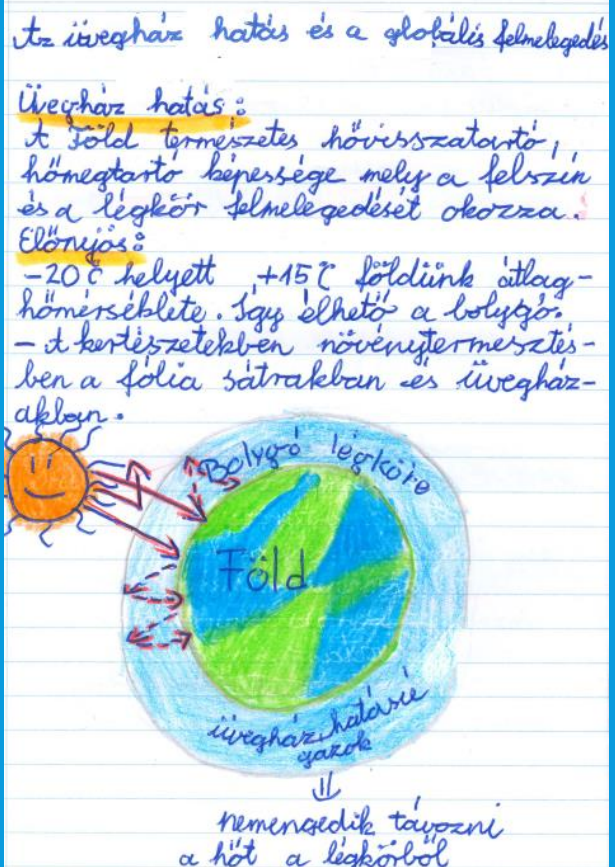 Az üvegház hatás és a globális felmelegedés
Üvegház hatás:
A Föld természetes hővisszatartó,
hőmegtartó képessége mely a felszín
és a légkör felmelegedését okozza.
Előnyös:
-20 C helyett, +15 C földünk átlag-
hőmérséklete. Így élhető a bolygó.
- A kertészetekben növénytermesztés-
ben a fólia sátrakban és üvegház-
akban.
Bolygó légköre
Föld
üvegház hatású
gázok
⇓
nemengedik távozni
a hőt a légkörből